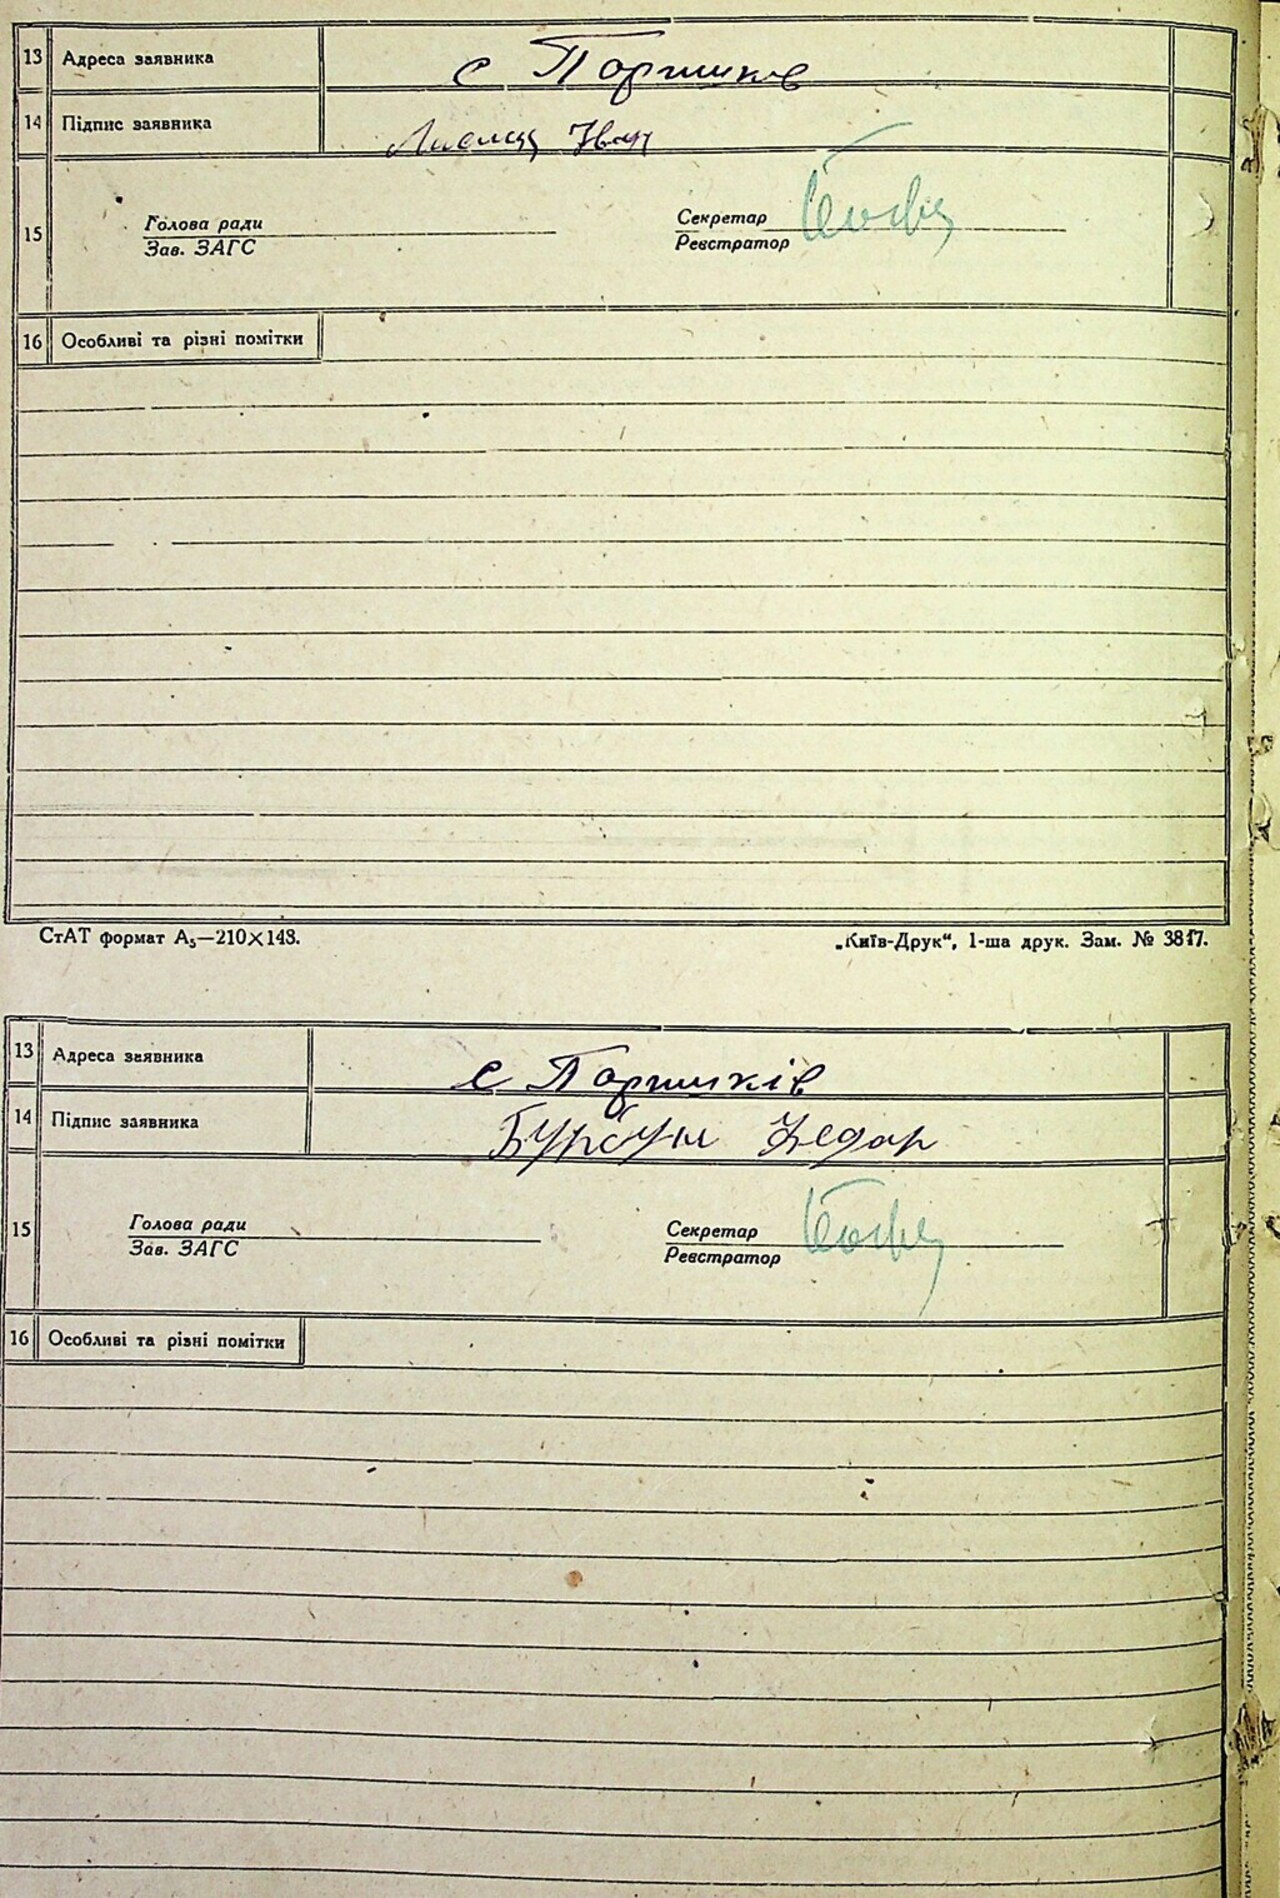 13 Адреса заявника с Поршків
14 Підпис заявника Іван
15 Голова ради Секретар
Зав. ЗАГС Реєстратор
16 Особливі та різні помітки
СтАТ формат А₅—210×148. „Київ-Друк“, 1-ша друк. Зам. № 3817.
13 Адреса заявника с Поршків
14 Підпис заявника Бурбум Федор
15 Голова ради Секретар
Зав. ЗАГС Реєстратор
16 Особливі та різні помітки